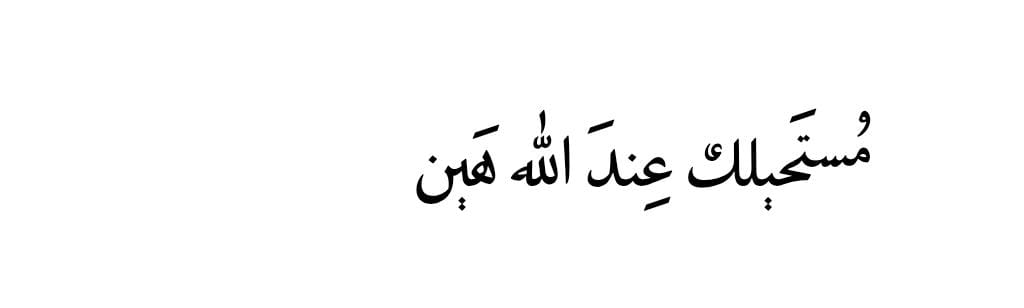 مُستَحيلكٌ عِندَ الله هَين